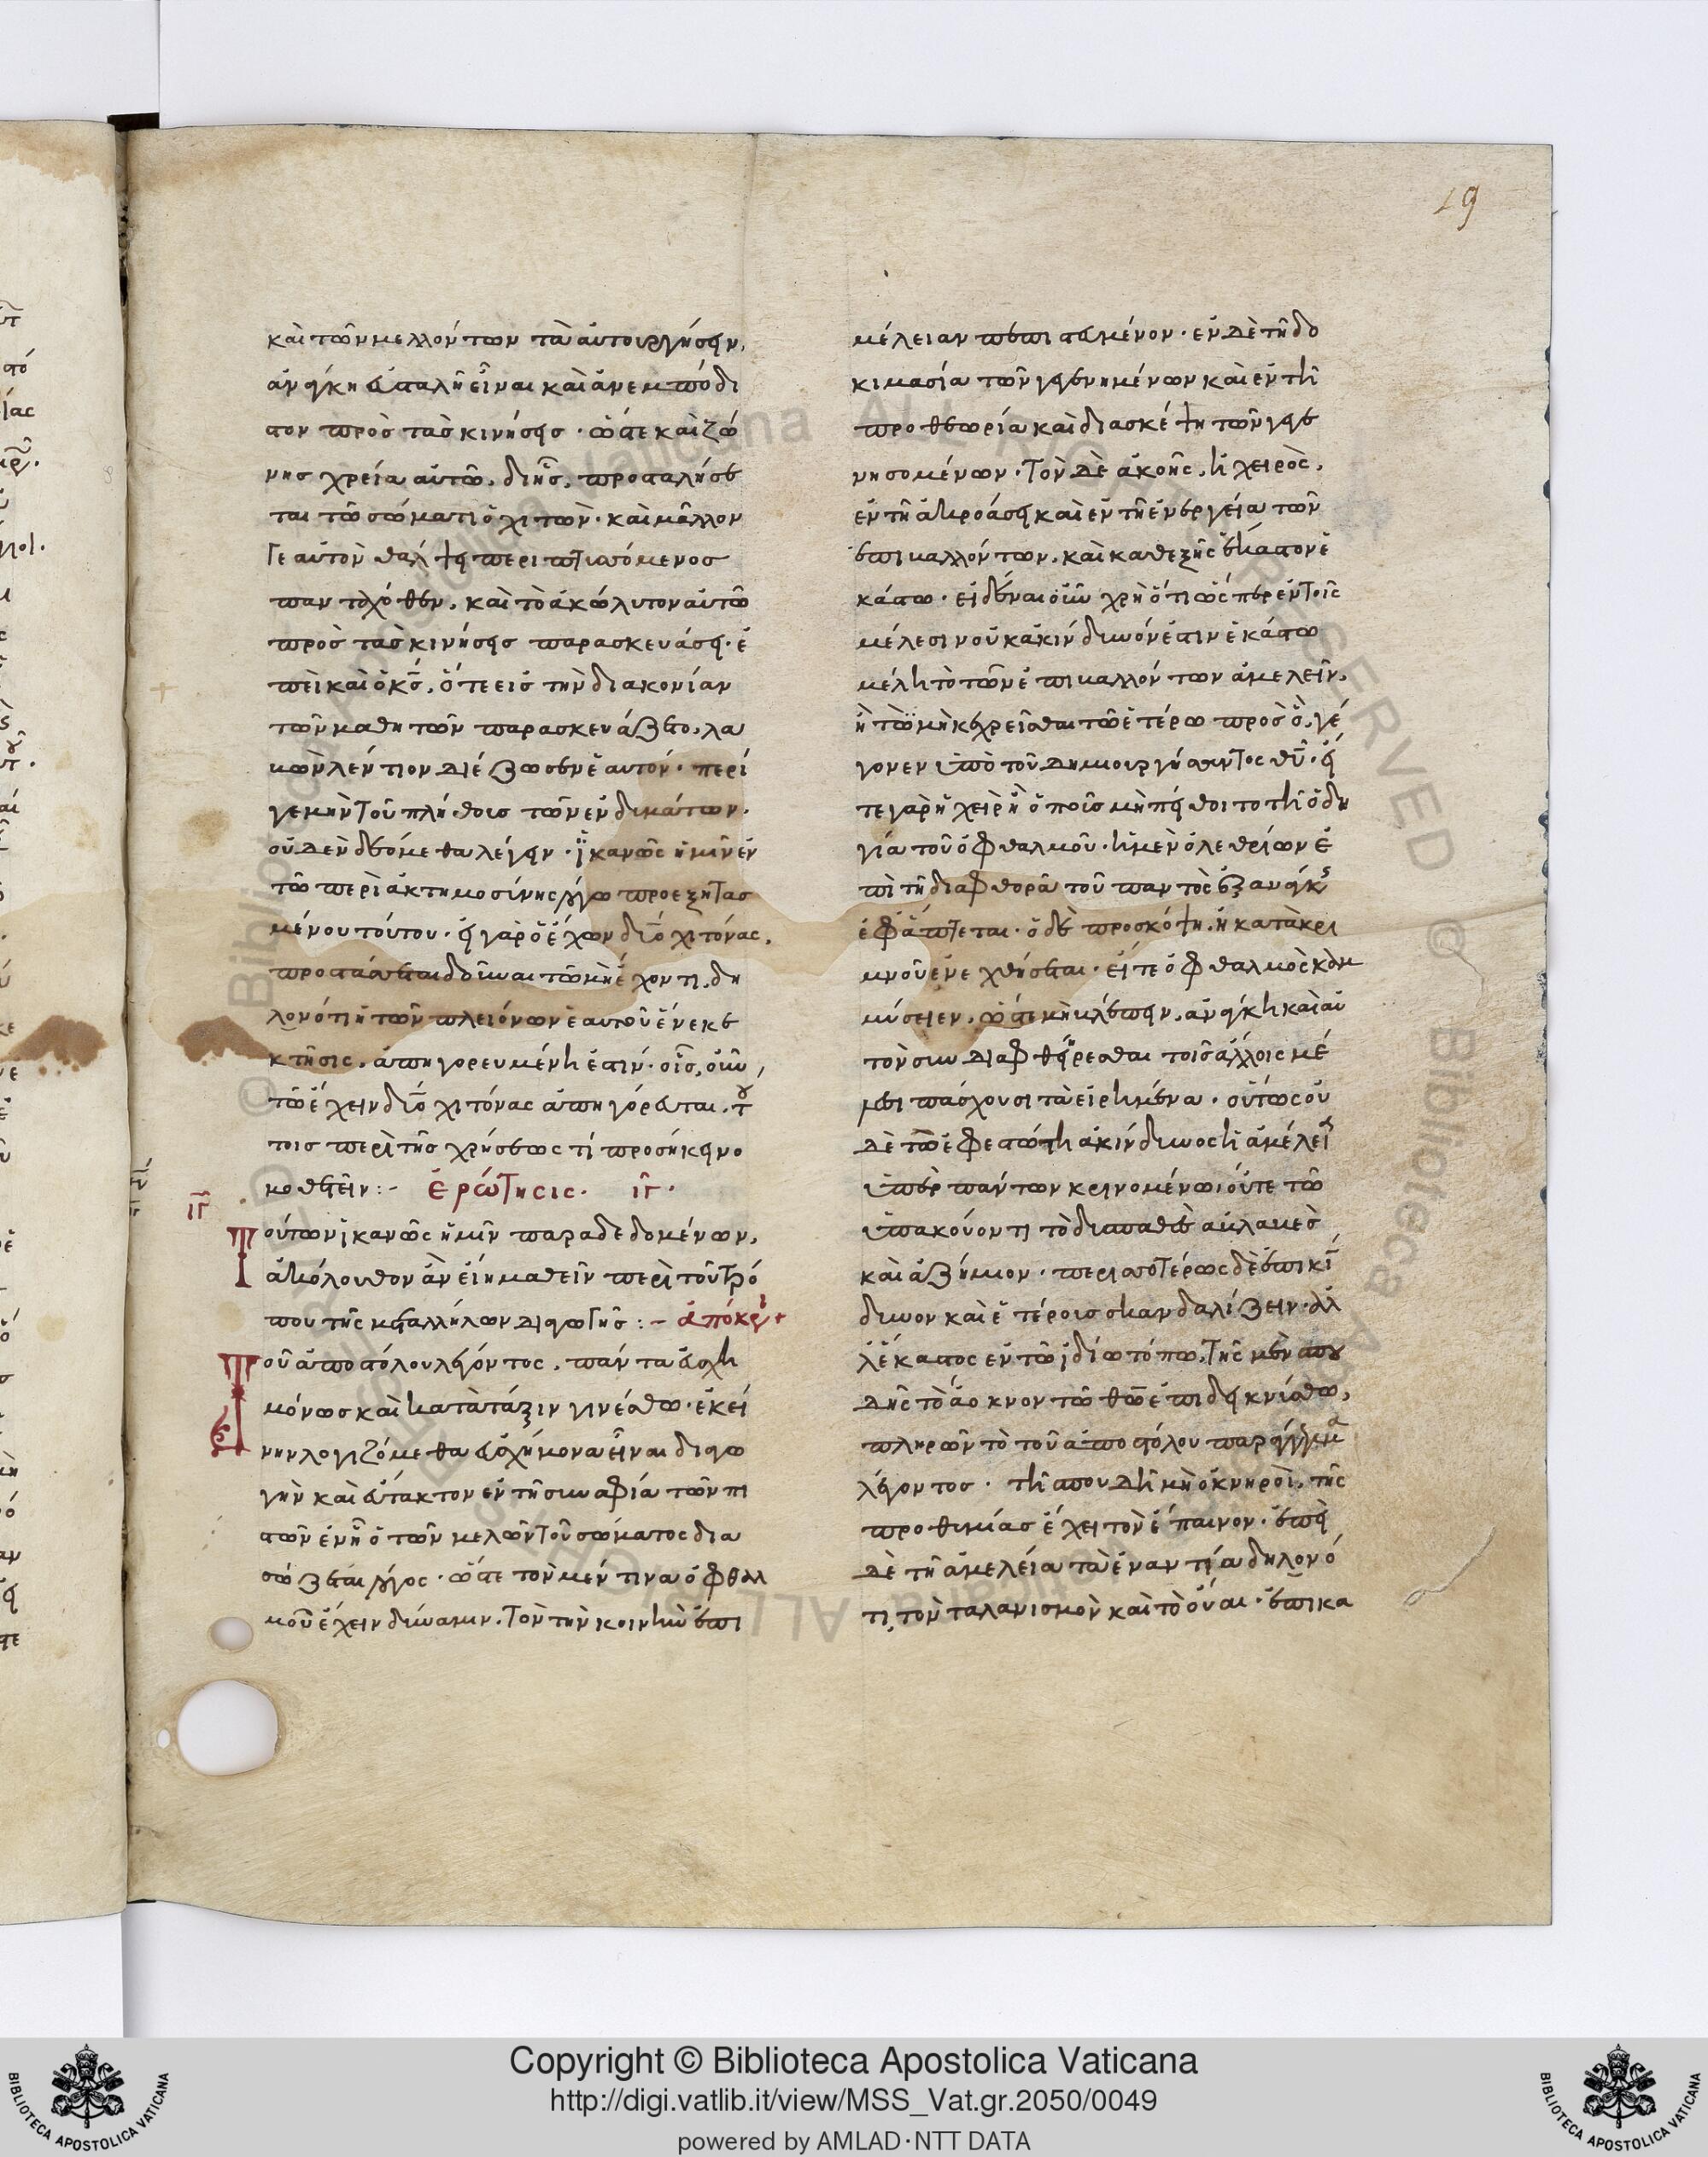 19
καὶ τῶν μελλόντων τὰ αὐτουργήσειν,
ἀνάγκη εὐσταλῆ εἶναι καὶ ἀνεμπόδι
στον πρὸς τὰς κινήσεις· ὥστε καὶ ζώ
νης χρεία αὐτῷ, δι' ἧς, προσταλήσε
ται τῷ σώματι ὁ χιτών· καὶ μᾶλλον
γε αὐτὸν θάλψει περιπτυσσόμενος
πανταχόθεν, καὶ τὸ ἀκώλυτον αὐτῷ
πρὸς τὰς κινήσεις παρασκευάσει· ἐ
πεὶ καὶ ὁ κς, ὅτε εἰς τὴν διακονίαν
τῶν μαθητῶν παρασκευάζετο, λα
βὼν λέντιον διέζωσεν ἑαυτόν· περί
γε μὴν τοῦ πλήθους τῶν ἐνδυμάτων.
οὐδὲν δεόμεθα λέγειν· ἱκανῶς ἡμῖν ἐν
τῷ περὶ ἀκτημοσύνης λόγῳ προεξητασ
μένου τούτου· εἰ γὰρ ὁ ἔχων δύο χιτόνας,
προστάσσεται δοῦναι τῷ μὴ ἔχοντι, δη
λονότι ἡ τῶν πλειόνων ἑαυτοῦ ἕνεκε
κτῆσις, ἀπηγορευμένη ἐστίν· οἷς, οὖν,
τὸ ἔχειν δύο χιτόνας ἀπηγόρευται, τού
τοις περὶ τῆς χρήσεως τί προσήκει νο
μοθετεῖν:- ἐρώτησις· ιγ·
ιγ
Τούτων ἱκανῶς ἡμῖν παραδεδομένων,
ἀκόλουθον ἂν εἴη μαθεῖν περὶ τοῦ τρό
που τῆς μετ' ἀλλήλων διαγωγῆς:- ἀπόκρι+
Τοῦ ἀποστόλου λέγοντος, πάντα εὐσχη
μόνως καὶ κατὰ τάξιν γινέσθω· ἐκεί
νην λογιζόμεθα εὐσχήμονα εἶναι διαγω
γὴν καὶ εὔτακτον ἐν τῇ συναφίᾳ τῶν πι
στῶν ἐν ᾗ ὁ τῶν μελῶν τοῦ σώματος δια
σώζεται λόγος· ὥστε τὸν μέν τινα ὀφθαλ
μοῦ ἔχειν δύναμιν. τὸν τὴν κοινὴν ἐπι
μέλειαν πεπιστευμένον· ἐν δὲ τῇ δο
κιμασίᾳ τῶν γεγενημένων καὶ ἐν τῇ
προθεωρίᾳ καὶ διασκέψη τῶν γενε
νησομένων· τὸν δὲ ἀκοῆς, ἢ χειρὸς,
ἐν τῇ ἀκροάσει καὶ ἐν τῇ ἐνεργείᾳ τῶν
ἐπιβαλλόντων, καὶ καθεξῆς ἕκαστον ἑ
κάστῳ· εἰδέναι οὖν χρὴ ὅτι ὥσπερ ἐν τοῖς
μέλεσιν οὐκ ἀκίνδυνόν ἐστιν ἑκάστῳ
μέλη τὸ τῶν ἐπιβαλλόντων ἀμελεῖν,
ἢ τῷ μὴ κεχρεῖσθαι τῷ ἑτέρῳ πρὸς ὃ, γέ
γονεν ὑπὸ τοῦ δημιουργήσαντος θυ· εἴ
τε γὰρ ἡ χεὶρ ἢ ὁ ποῦς μὴ πείθοιτο τῇ ὁδη
γίᾳ τοῦ ὀφθαλμοῦ· ἡ μὲν ὀλεθρίων ἐ
πὶ τῇ διαφθορᾷ τοῦ παντὸς ἐξ ανάγκης
ἐφάπτεται· ὁ δὲ προσκόψη, ἢ κατὰ κρη
μνοῦ ἐνεχθήσεται· εἴτε ὀφθαλμὸς καμ
μύσειεν, ὥστε μὴ βλέπειν, ἀνάγκη καὶ αὐ
τὸν συνδιαφθείρεσθαι τοῖς ἄλλοις μέ
λεσι πάσχουσι τὰ εἰρημένα· οὕτως οὐ
δὲ τῷ ἐφεστώτη ἀκίνδυνος ἡ ἀμέλει
ὑπὲρ πάντων κρινομένῳ· οὔτε τῷ
ὑπακούοντι τὸ δυσπαθὲς ἀβλαβὲς
καὶ ἀζήμιον· περισσοτέρως δὲ ἐπικίν
δυνον καὶ ἑτέροις σκανδαλίζειν· ἀλ
λ' ἕκαστος ἐν τῷ ἰδίῳ τόπῳ, τῆς μὲν σπου
δῆς τὸ ἄοκνον τῷ θῶ ἐπιδεικνύσθω,
πληρῶν τὸ τοῦ ἀποστόλου παράγγελμα
λέγοντος· τῇ σπουδῇ μὴ ὀκνηροὶ, τῆς
προθυμίας ἔχει τὸν ἔπαινον· ἐπεὶ
δὲ τῇ ἀμελείᾳ τὰ ἐναντία δηλονό
τι, τὸν ταλανισμὸν καὶ τὸ οὐαι· ἐπικα
Copyright © Biblioteca Apostolica Vaticana
http://digi.vatlib.it/view/MSS_Vat.gr.2050/0049
powered by AMLAD·NTT DATA
BIBLIOTECA APOSTOLICA VATICANA
BIBLIOTECA APOSTOLICA VATICANA